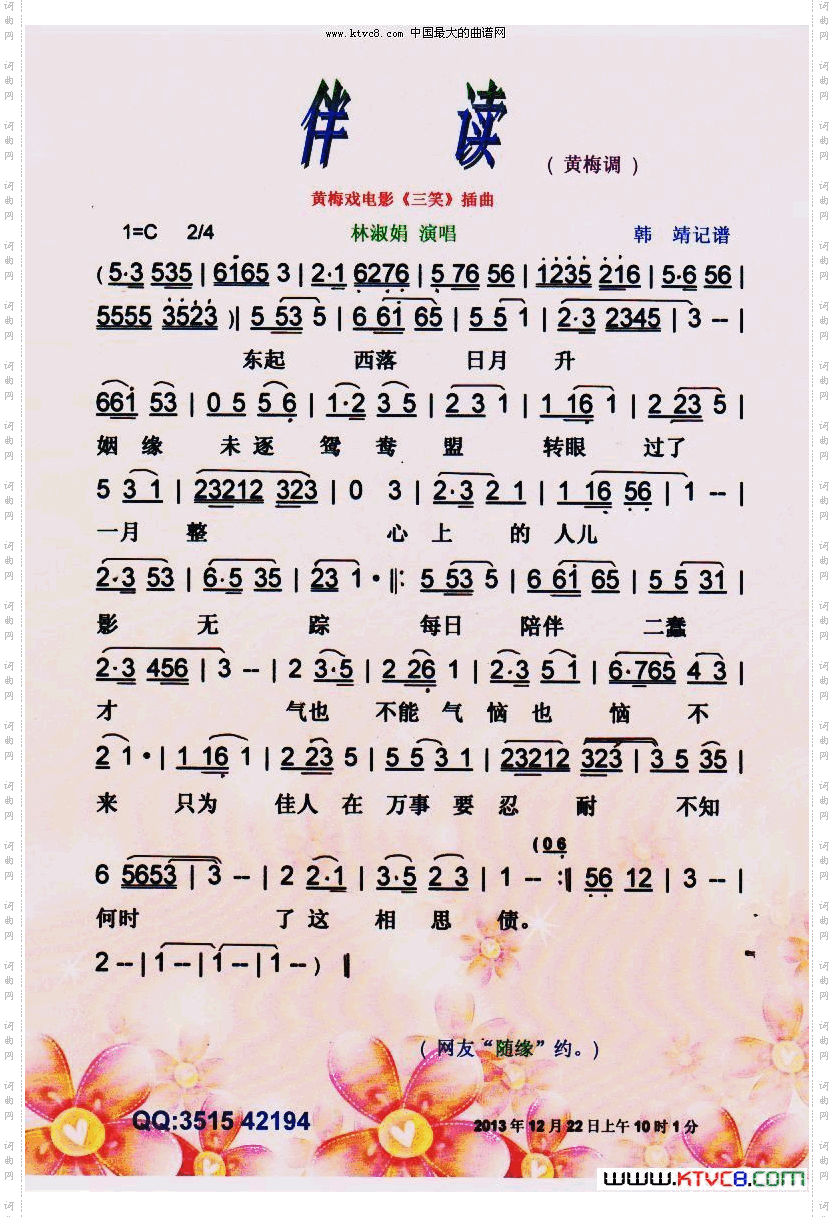 www.ktvc8.com 中国最大的曲谱网
伴 读
(黄梅调)
黄梅戏电影《三笑》插曲
1=C 2/4 林淑娟 演唱 韩 靖记谱
(5·3 535 | 6165 3 | 2·1 6276 | 5 76 56 | 1235 216 | 5·6 56 |
5555 3523 )| 5 53 5 | 6 61 65 | 5 5 1 | 2·3 2345 | 3 -- |
东起 西落 日月 升
661 53 | 0 5 5 6 | 1·2 3 5 | 2 3 1 | 1 16 1 | 2 23 5 |
姻 缘 未 逐 鸳 鸯 盟 转眼 过了
5 3 1 | 23212 323 | 0 3 | 2·3 2 1 | 1 16 56 | 1 -- |
一月 整 心 上 的 人儿
2·3 53 | 6·5 35 | 23 1· ‖: 5 53 5 | 6 61 65 | 5 5 31 |
影 无 踪 每日 陪伴 二蠢
2·3 456 | 3 -- | 2 3·5 | 2 26 1 | 2·3 5 1 | 6·765 4 3 |
才 气也 不能 气 恼 也 恼 不
2 1· | 1 16 1 | 2 23 5 | 5 5 3 1 | 23212 323 | 3 5 35 |
来 只为 佳人 在 万事 要 忍 耐 不知
(0 6
6 5653 | 3 -- | 2 2·1 | 3·5 2 3 | 1 -- :‖ 56 12 | 3 -- |
何时 了 这 相 思 债。
2 -- | 1 -- | 1 -- | 1 -- ) ‖
(网友“随缘”约。)
QQ:3515 42194
2013年12月22日上午10时1分
www.KTVC8.com
词曲网